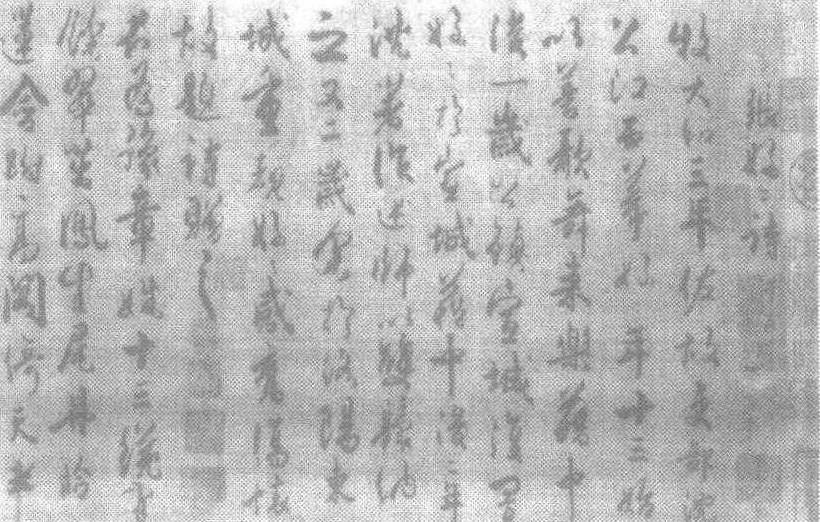 張好〻詩
牧大和三年佐故吏部沈
公江西幕好〻年十三始
以善歌舞來樂籍中
後一歲公鎮宣城復置
好〻於宣城籍中後二年
沈著作述師以雙鬟納
之又二歲余於洛陽東
城重覩好〻感舊傷懷
故題詩贈之
君爲豫章姝十三纔有
餘翠茁鳳生尾丹臉
蓮含跗高閣倚天半